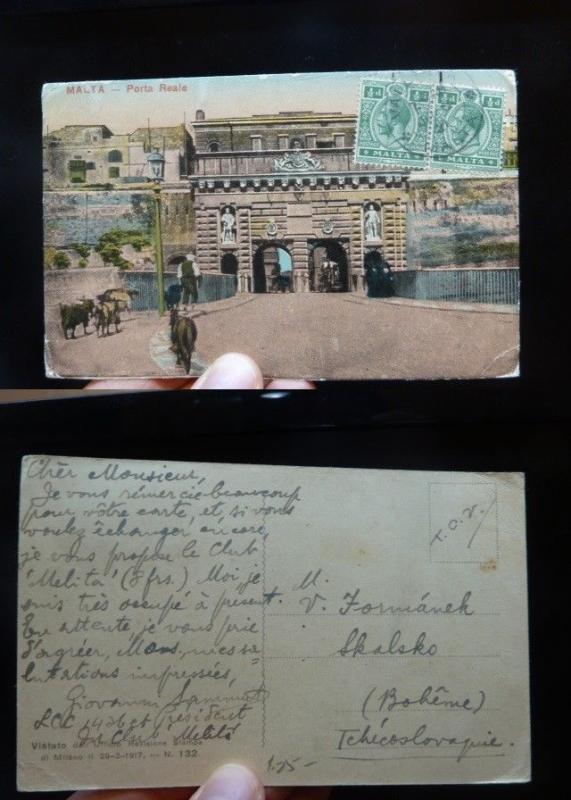 MALTA — Porta Reale
½d ½d
MALTA
½d ½d
MALTA
Chèr Monsieur,
Je vous rémercie beaucoup
pour vôtre carte, et si vous
voulez êchanger encore,
je vous propose le Club
'Melita' (5 frs.) Moi, je
suis très occupé à présent.
En attente, je vous prie
d'agréer, Mons., mes sa-
lutations impressées,
Giovanni Sammut
President
Club Melita
Vistato dall'Ufficio Revisione Stampa
di Milano il 29-3-1917. — N. 132.
T.C.V.
M.
V. Formánek
Skalsko
(Bohême)
Tchécoslovaquie.
1.75-